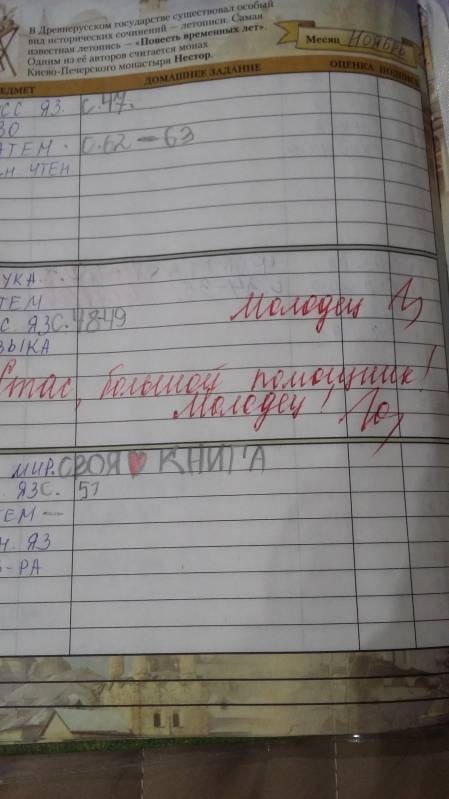 В Древнерусском государстве существовал особый
вид исторических сочинений — летописи. Самая
известная летопись — «Повесть временных лет».
Одним из её авторов считается монах
Киево-Печерского монастыря Нестор.
Месяц НОЯБРЬ
ЕДМЕТ ДОМАШНЕЕ ЗАДАНИЕ ОЦЕНКА ПОДПИСЬ
СС ЯЗ. С.47.
ЗО
АТЕМ. С.62 — 63
Н. ЧТЕН
УКА
ТЕМ
Молодец
С ЯЗ С.4849
ЗЫКА
Стас, большой помощник!
Молодец!
МИР. СВОЯ КНИГА
. ЯЗ С. 51
ТЕМ —
Н. ЯЗ
-РА